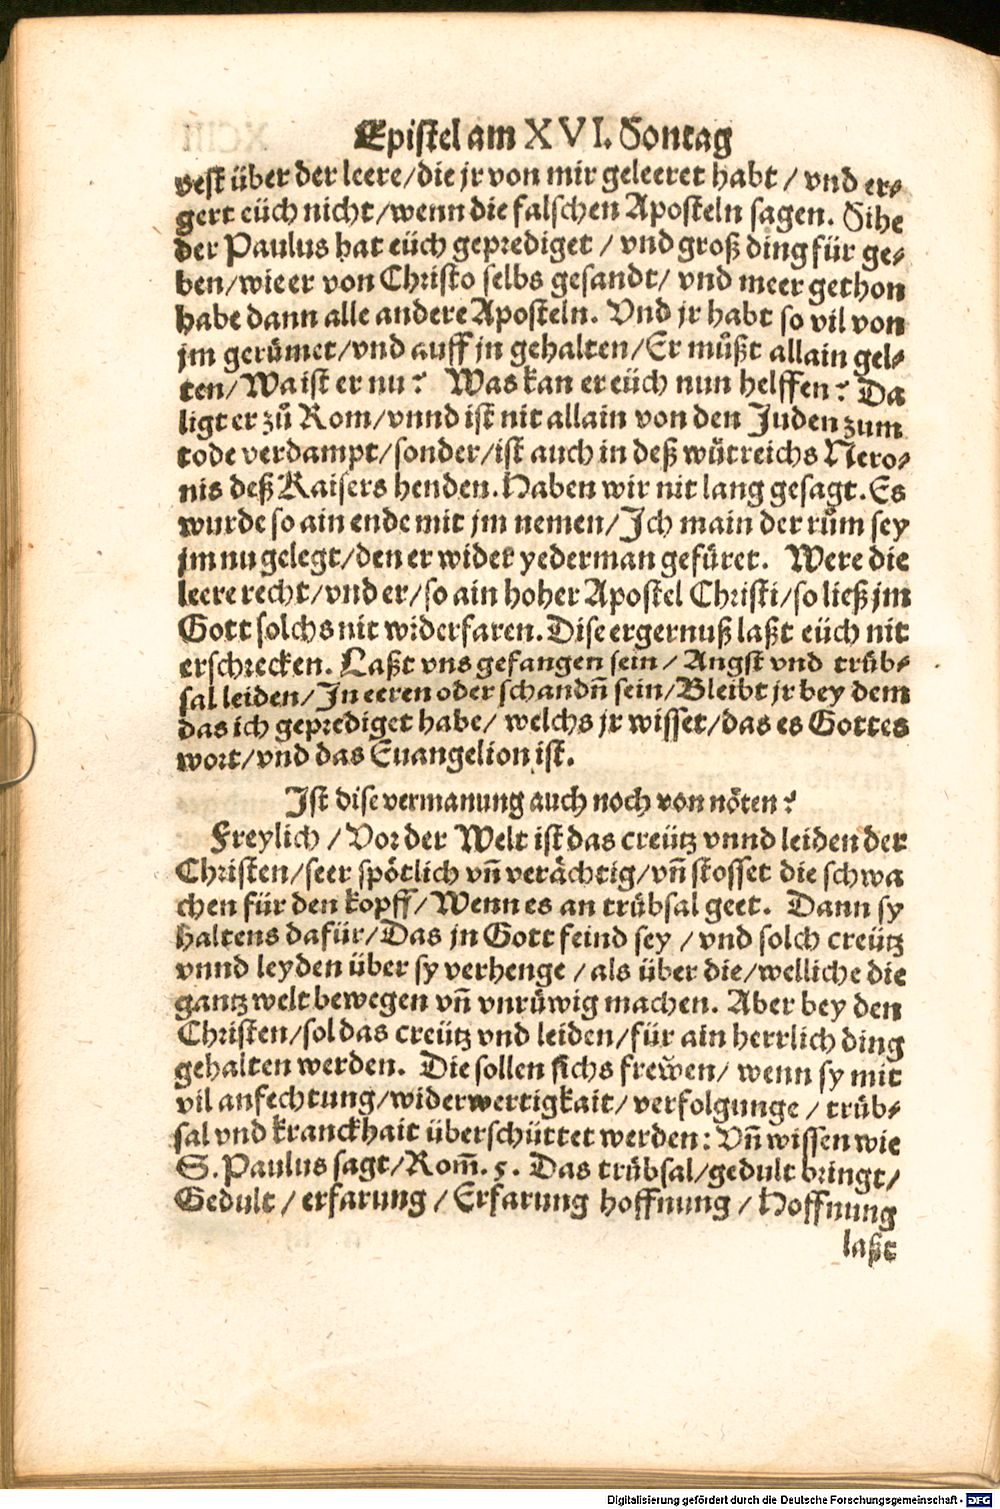 Epistel am XVI. Sontag
vest über der leere/die jr von mir geleeret habt / vnd er⸗
gert eüch nicht/wenn die falschen Aposteln sagen. Sihe
der Paulus hat eüch geprediget / vnd groß ding für ge⸗
ben/wie er von Christo selbs gesandt/ vnd meer gethon
habe dann alle andere Aposteln. Vnd jr habt so vil von
jm gerümet/vnd auff jn gehalten/Er müßt allain gel⸗
ten/Wa ist er nu? Was kan er eüch nun helffen? Da
ligt er zů Rom/vnnd ist nit allain von den Juden zum
tode verdampt/sonder/ist auch in deß wütreichs Nero⸗
nis deß Kaisers henden. Haben wir nit lang gesagt. Es
wurde so ain ende mit jm nemen/Ich main der rům sey
jm nu gelegt/den er wider yederman gefüret. Were die
leere recht/vnd er/so ain hoher Apostel Christi/so ließ jm
Gott solchs nit widerfaren. Dise ergernuß laßt eüch nit
erschrecken. Laßt vns gefangen sein / Angst vnd trüb⸗
sal leiden/In eeren oder schandn̄ sein/Bleibt jr bey dem
das ich geprediget habe/ welchs jr wisset/das es Gottes
wort/vnd das Euangelion ist.
Ist dise vermanung auch noch von nöten?
Freylich / Vor der Welt ist das creütz vnnd leiden der
Christen/seer spötlich vn̄ verächtig/vn̄ stosset die schwa
chen für den kopff/Wenn es an trübsal geet. Dann sy
haltens dafür/Das jn Gott feind sey / vnd solch creütz
vnnd leyden über sy verhenge / als über die/welliche die
gantz welt bewegen vn̄ vnrüwig machen. Aber bey den
Christen/sol das creütz vnd leiden/für ain herrlich ding
gehalten werden. Die sollen sichs frewen/ wenn sy mit
vil anfechtung/widerwertigkait/ verfolgunge / trüb⸗
sal vnd kranckhait überschüttet werden: Vn̄ wissen wie
S. Paulus sagt/Rom̄. 5. Das trübsal/gedult bringt/
Gedult / erfarung / Erfarung hoffnung / Hoffnung
laßt
Digitalisierung gefördert durch die Deutsche Forschungsgemeinschaft - DFG